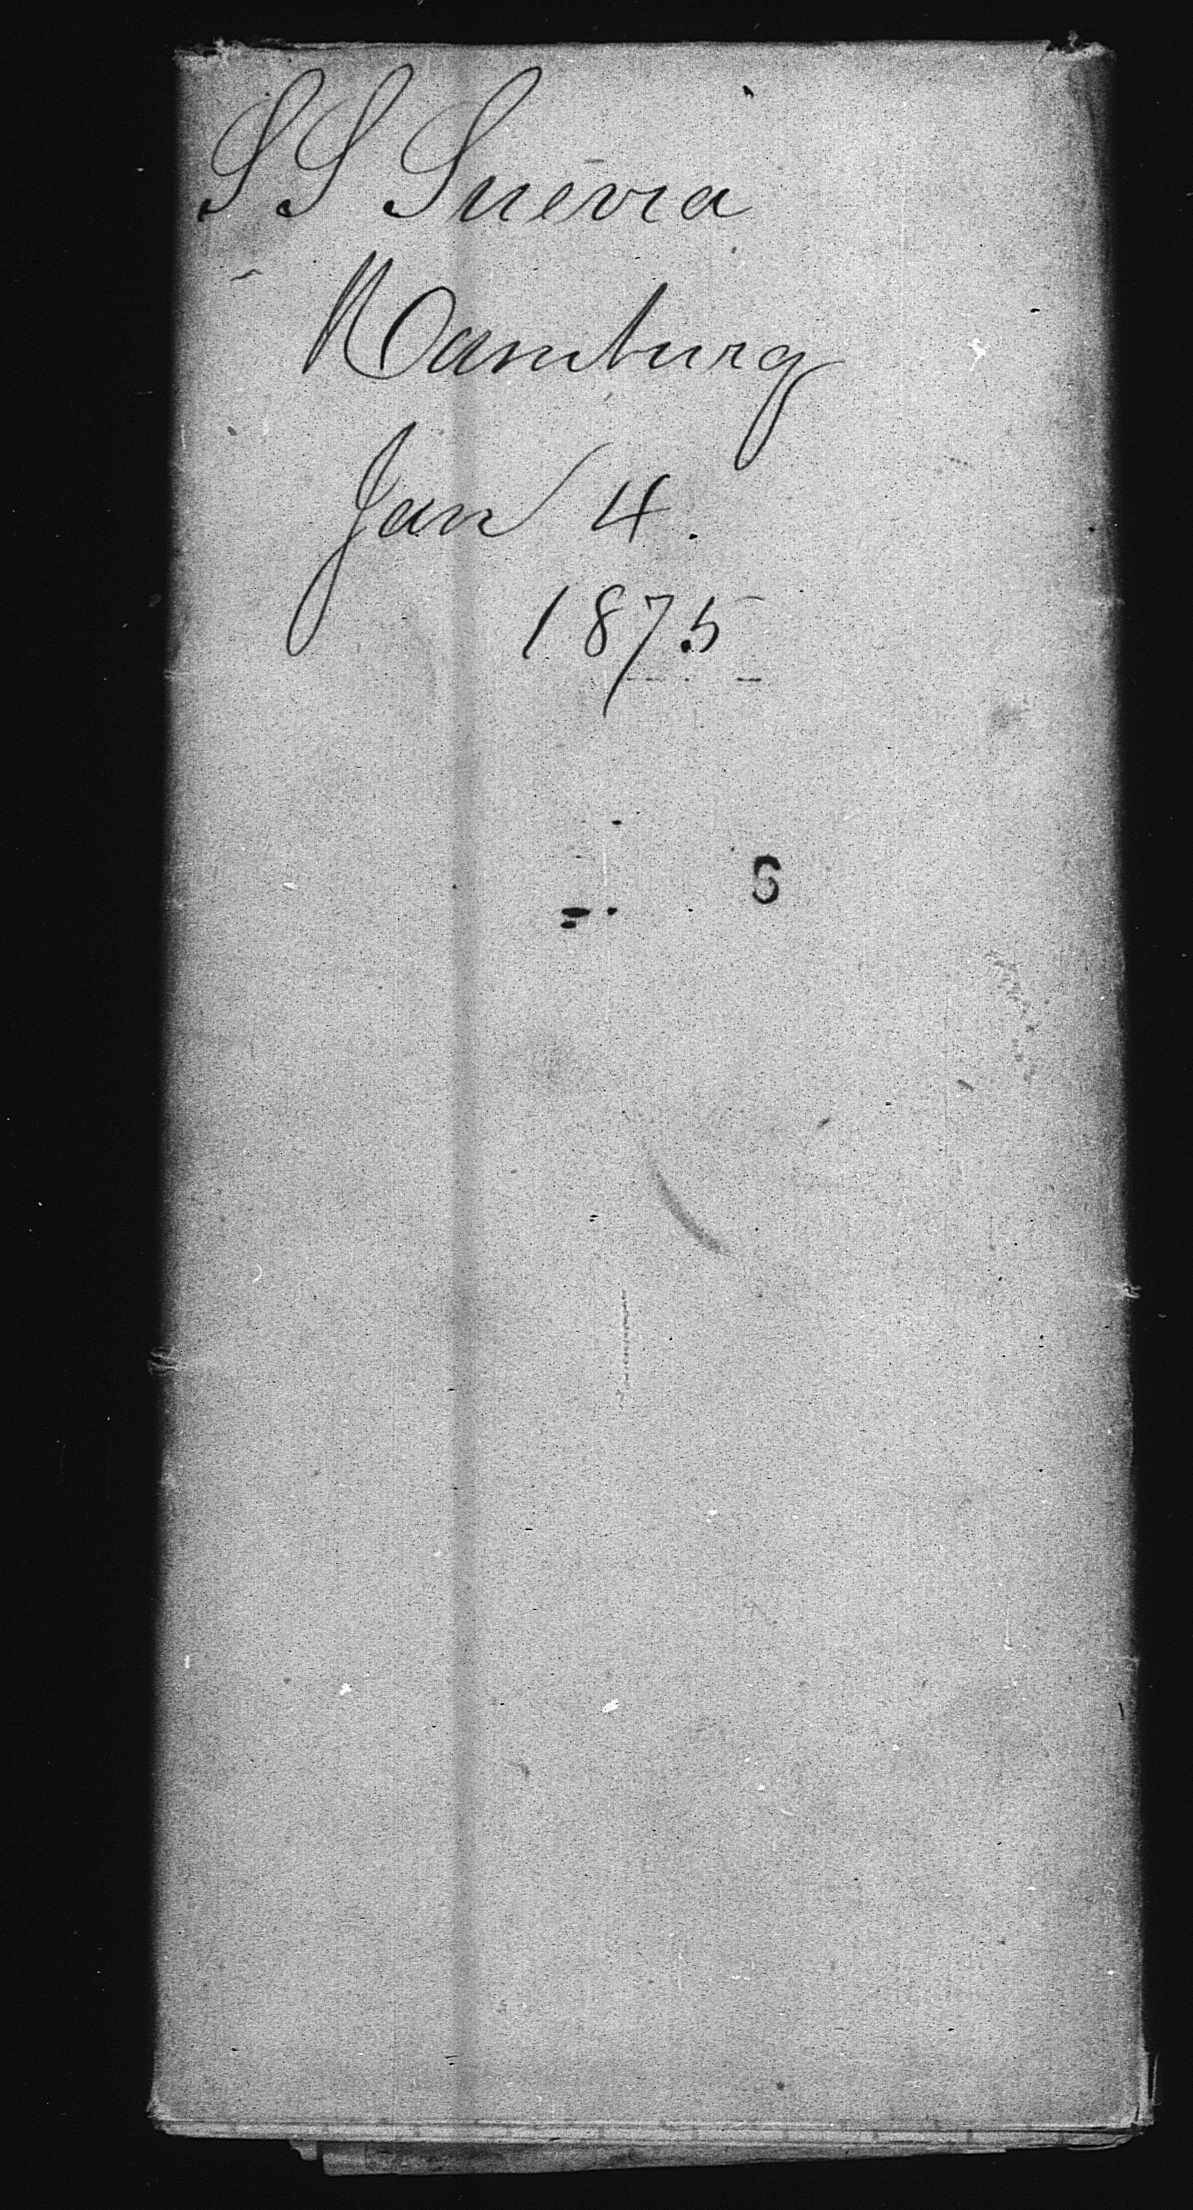 SS Suevia
Hamburg
Jan 4.
1875
6